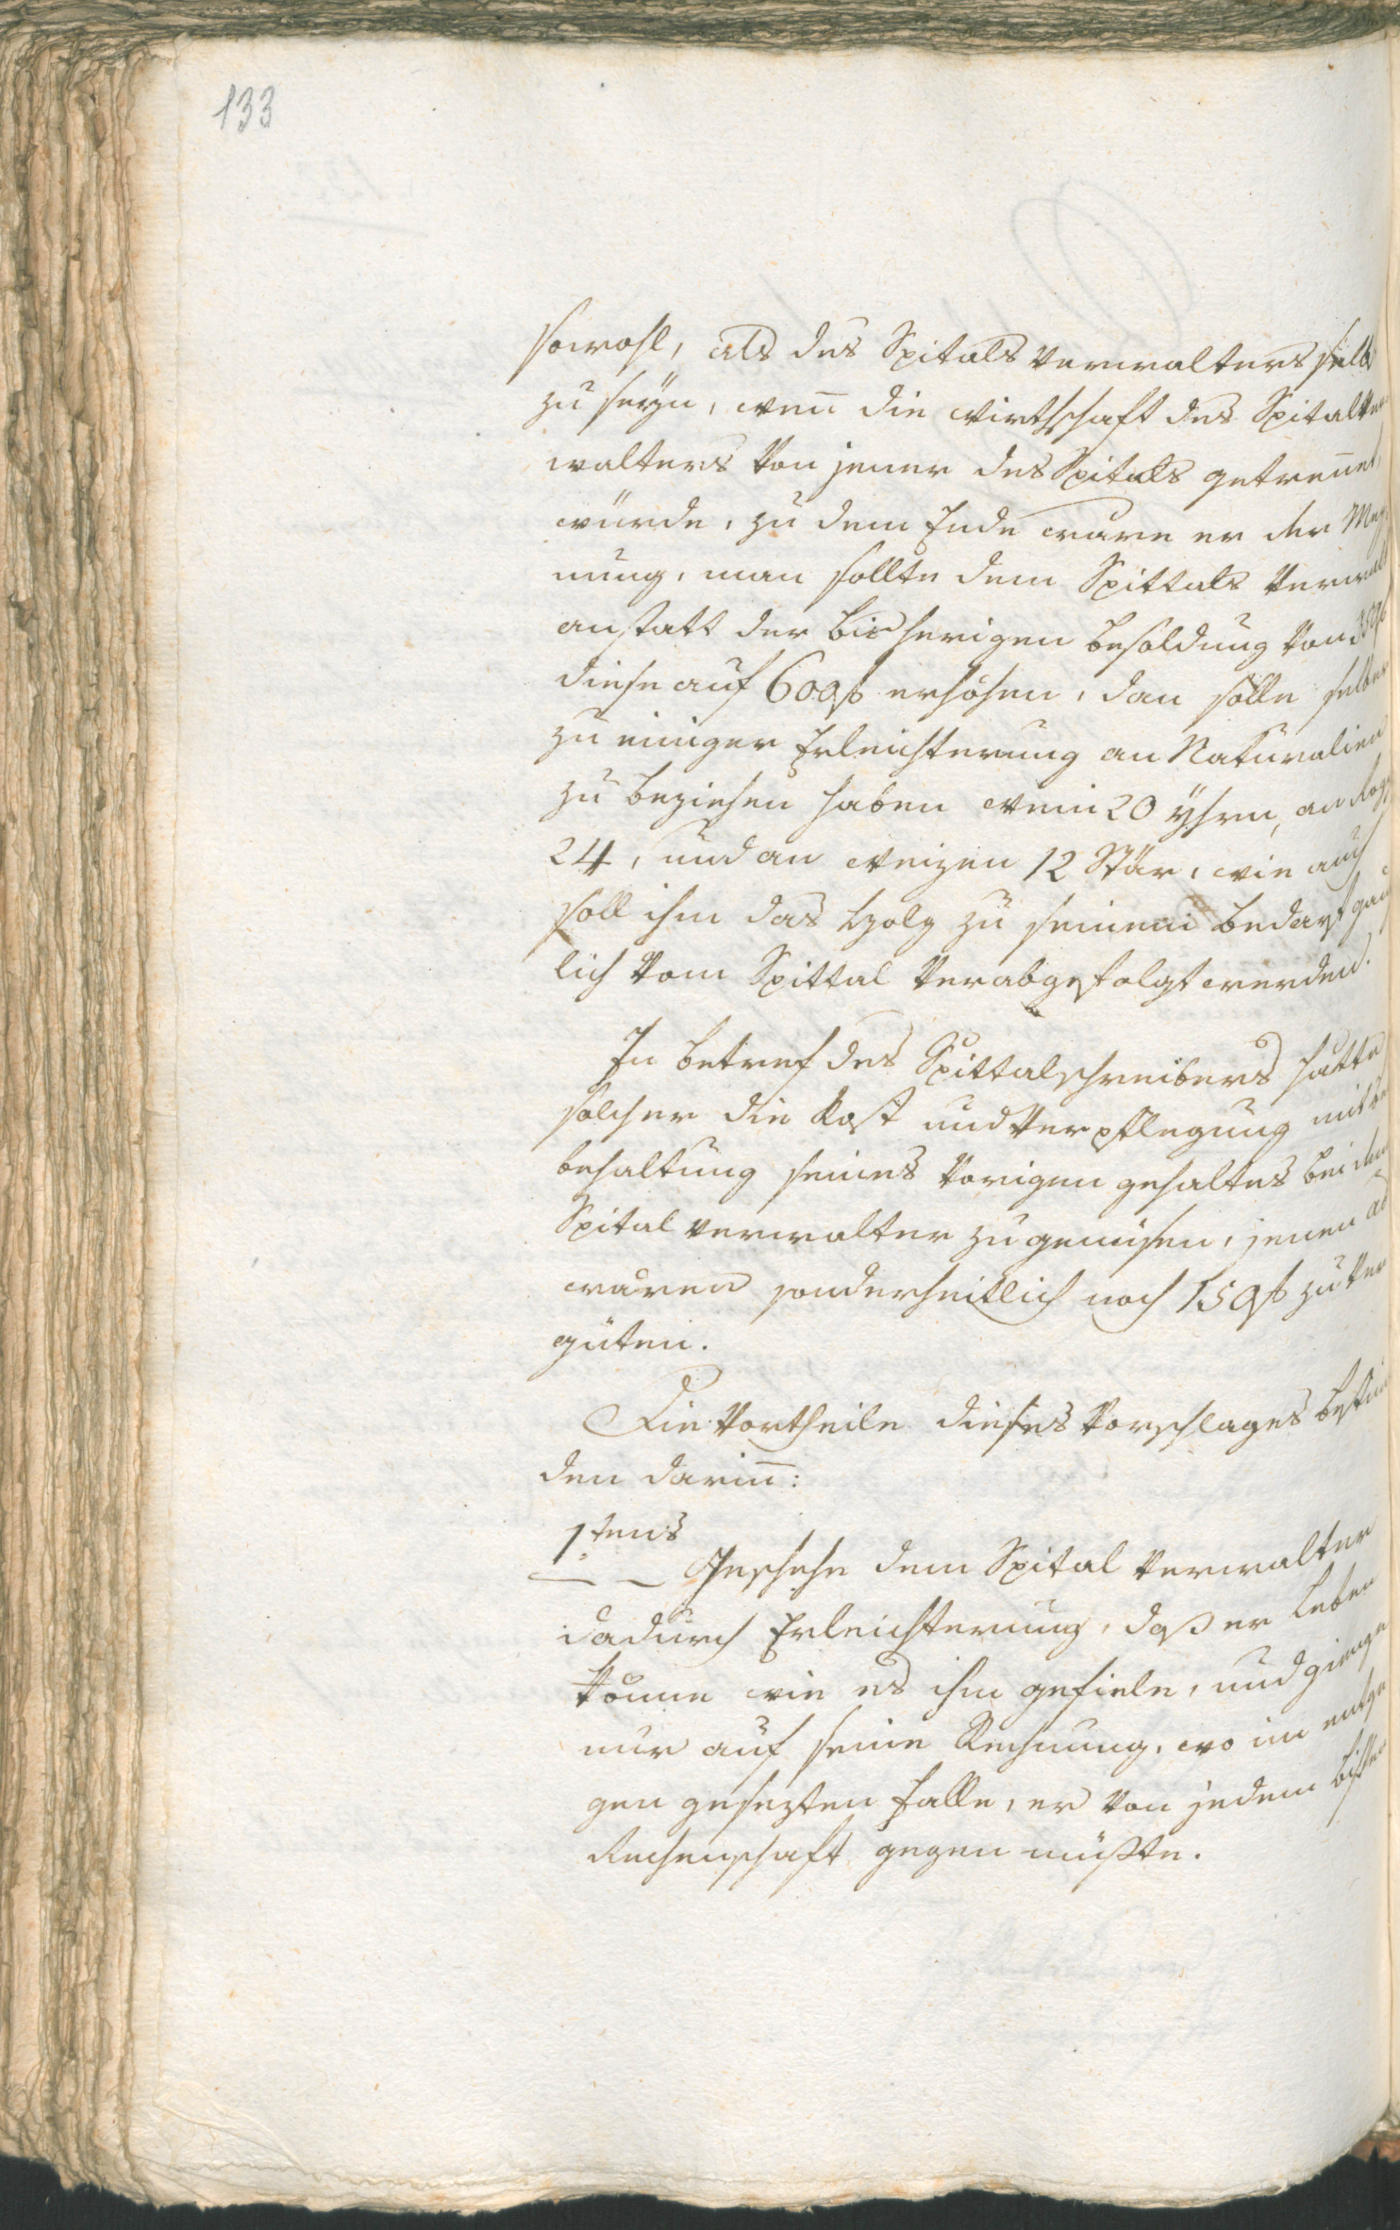 133
sowohl, als des Spitals Verwalters selbs
zu seÿn, wen̅ die Wirthschaft des Spitalver
walters von jener des Spitals getren̅et
würde, zu dem Ende ware er der Meÿ
nung, man sollte dem Spittals Verwalt
anstatt der bisherigen Besoldung von 350 f
diese auf 600 f erhöhen, dan solle selber
zu einiger Erleichterung an Naturalien
zu beziehen haben Wein 20 Ÿhrn, an Rog
24, und an Weizen 12 Stär, wie auch
soll ihm das Holz zu seinem Bedarf gäntz
lich vom Spittal verabgefolgt werden.
In betref des Spittalschreibers hatte
solcher die Kost und Verpflegung mit be
behaltung seines vorigen gehaltes bei dem
Spital verwalter zu genüsen, jenen ab
wären sonderheitlich noch 150 f zu ver
güten.
Die Vortheile dieses Vorschlages bestün
den darin̅:
1tens
Geschehe dem Spital Verwalter
dadurch Erleichterung, daß er leben
könne wie es ihm gefiele, und gienge
nur auf seine Rechnung, wo im entge
gen gesezten Falle, er von jedem bissen
Rechenschaft gegen müßte.